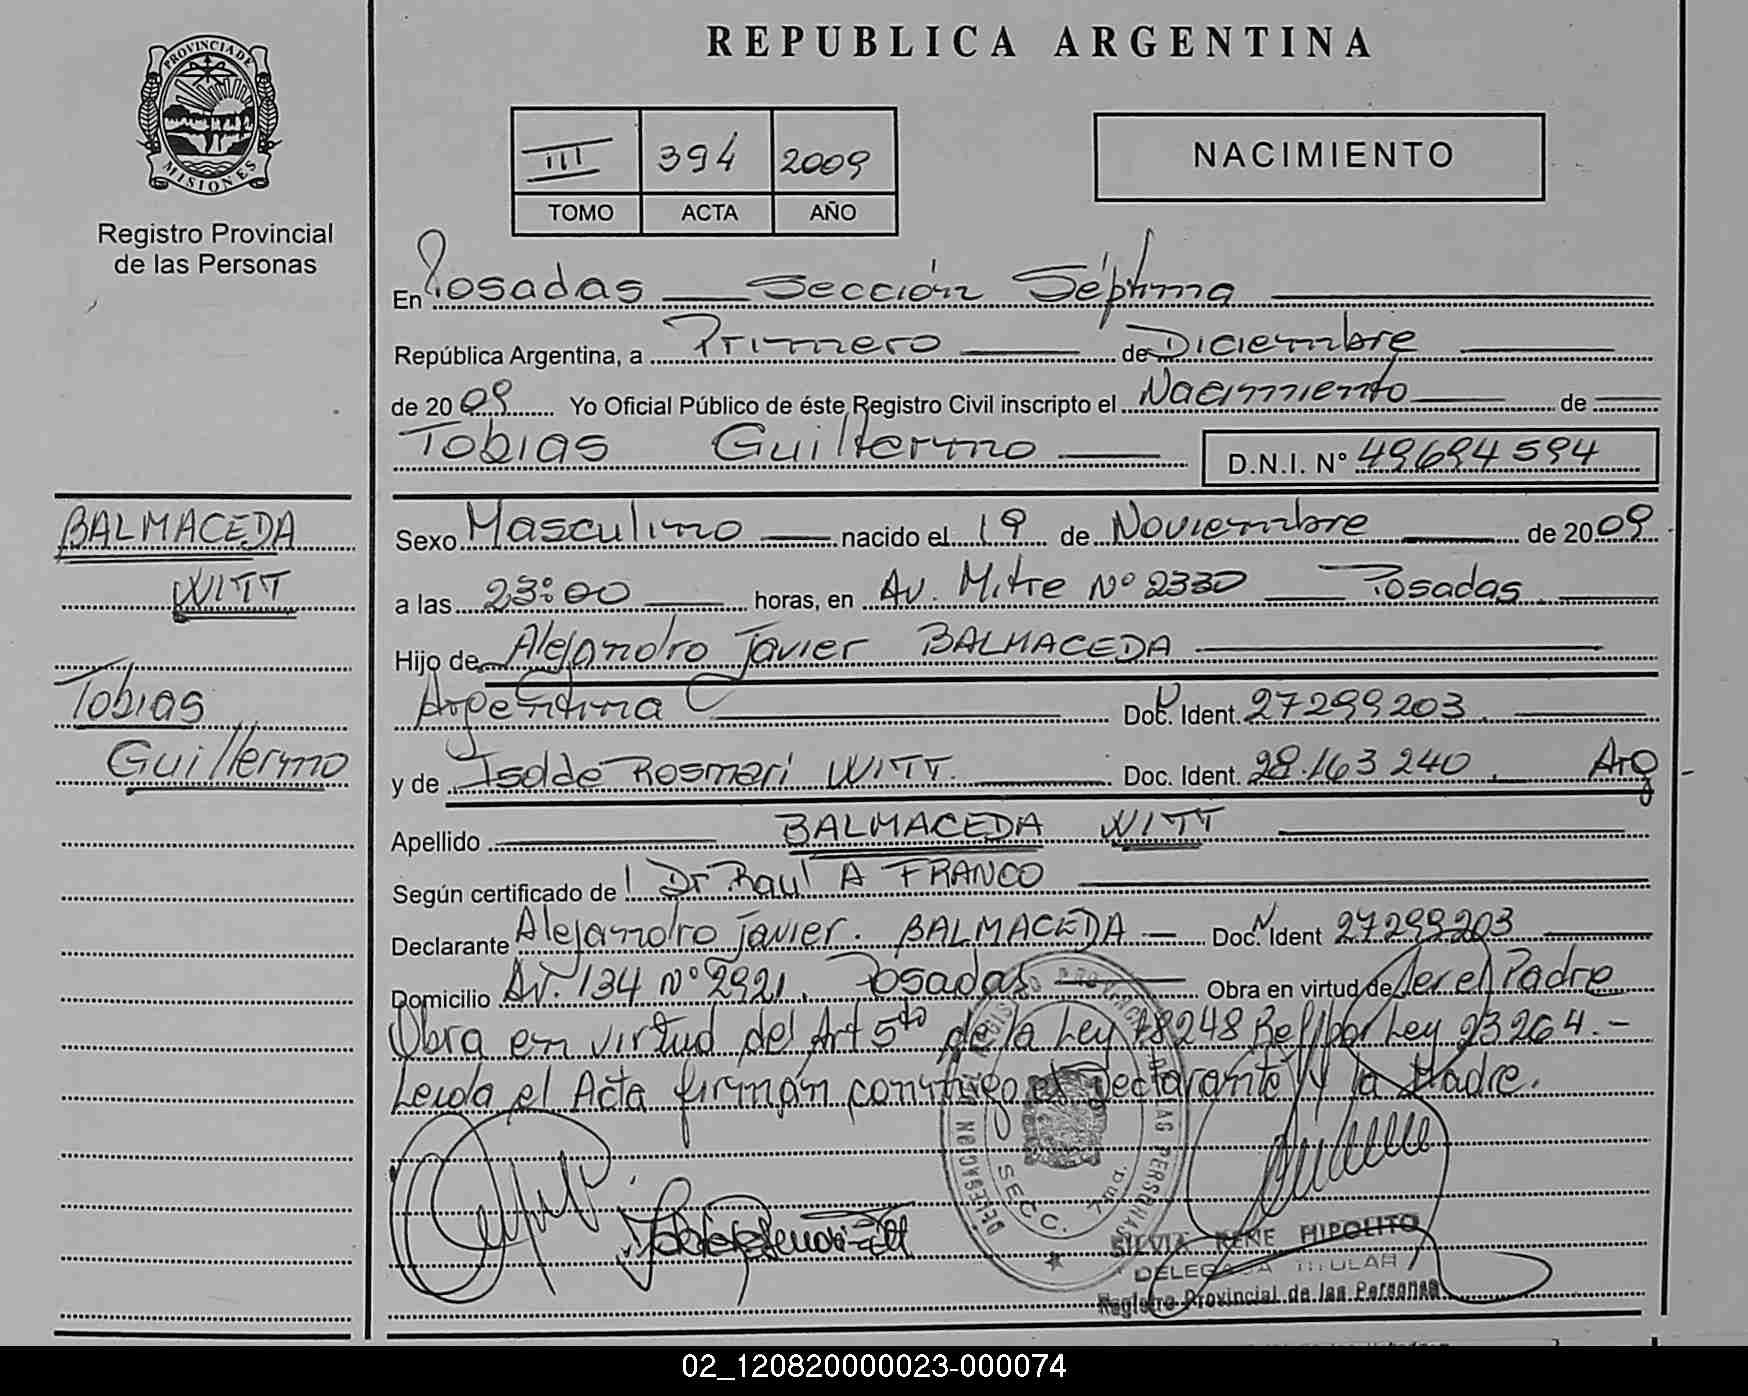 REPUBLICA ARGENTINA
PROVINCIA DE
MISIONES
Registro Provincial
de las Personas
III 394 2009
TOMO ACTA AÑO
NACIMIENTO
En Posadas Sección Séptima
República Argentina, a Primero de Diciembre
de 2009 Yo Oficial Público de éste Registro Civil inscripto el Nacimiento de
Tobias Guillermo D.N.I. Nº 49694594
BALMACEDA
WITT
Tobias
Guillermo
Sexo Masculino nacido el 19 de Noviembre de 2009
a las 23:00 horas, en Av. Mitre Nº 2330 Posadas
Hijo de Alejandro Javier BALMACEDA
Argentina Doc. Ident. 27299203
y de Isolde Rosmeri WITT. Doc. Ident. 28.163240, Arg
Apellido BALMACEDA WITT
Según certificado de Dr Raul A FRANCO
Declarante Alejandro Javier. BALMACEDA Doc. Ident 27299203
Domicilio Av. 134 Nº 2921, Posadas Obra en virtud de Ser el Padre
Obra en virtud del Art 5to de la Ley 18248 Ref por Ley 23264.-
Leida el Acta firman conmigo el Declarante y la Madre.
SECC. 7ma.
SILVIA RENE HIPOLITO
DELEGADA TITULAR
Registro Provincial de las Personas
02_120820000023-000074